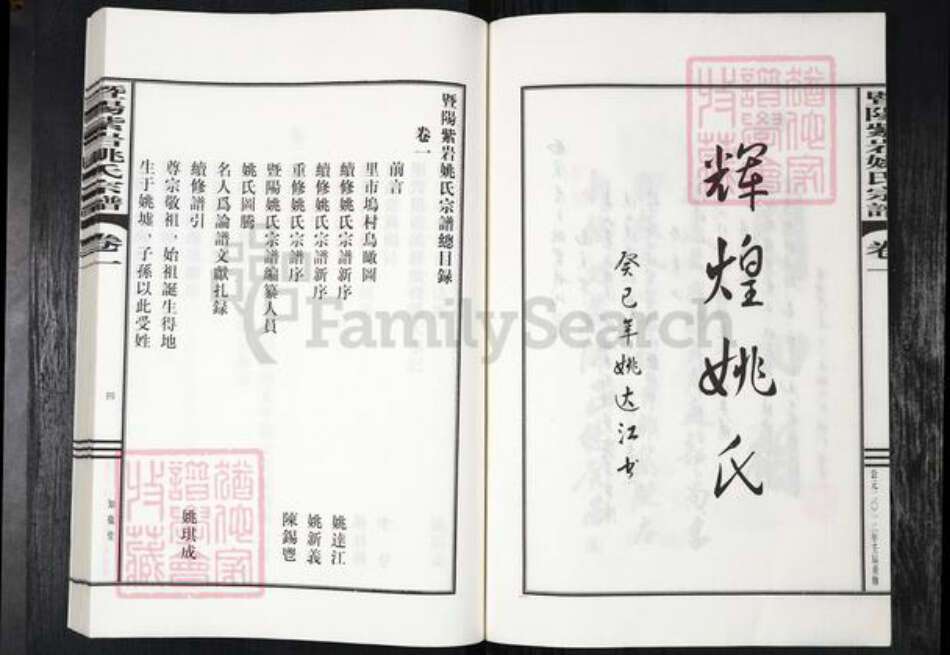 暨陽紫岩姚氏宗譜
卷一
輝煌姚氏
癸巳年姚达江书
暨陽紫岩姚氏宗譜總目録
卷一
前言
里市塢村鳥瞰圖
續修姚氏宗譜新序 姚達江
續修姚氏宗譜新序 姚新義
重修姚氏宗譜序 陳錫鬯
暨陽姚氏宗譜編纂人員
姚氏圖騰
名人爲論譜文獻扎録
續修譜引 姚琪成
尊宗敬祖，始祖誕生得地
生于姚墟，子孫以此受姓
暨陽紫岩姚氏宗譜
卷一
四
FamilySearch